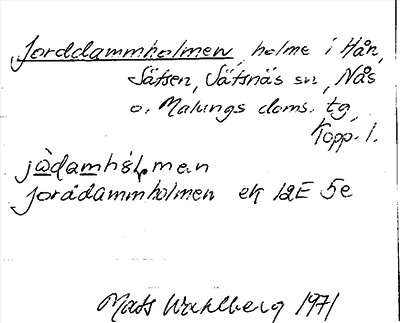 Jorddammholmen, holme i Hån,
Säfsen, Säfsnäs sn, Nås
o. Malungs doms. tg,
Kopp. l.
jὼdamhɷ̀lman
Jorddammholmen ek 12E 5e
Mats Wahlberg 1971